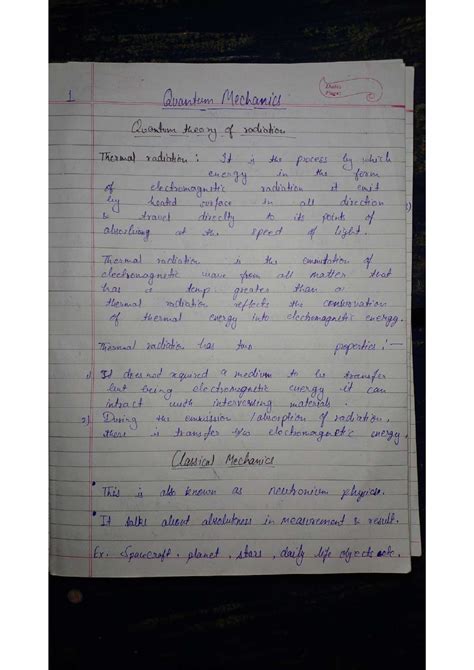 1
Quantum Mechanics
Quantum theory of radiation
Thermal radiation : It is the process by which
energy in the form
of electromagnetic radiation it emit
by heated surface in all direction
& travel directly to its points of
absorbing at the speed of light.
Thermal radiation is the emmutation of
electromagnetic wave from all matter that
has a temp. greater than o.
thermal radiation reflects the conservation
of thermal energy into electromagnetic energy.
Thermal radiation has two properties :-
1) It does not required a medium to be transfer
but being electromagnetic energy it can
intract with intervening materials.
2) During the emmission / absorption of radiation,
there is transfer b/w electromagnetic energy.
Classical Mechanics
• This is also known as neutronium physics.
• It talks about absoluteness in measurement & result.
Ex. Spacecraft, planet, stars, daily life objects etc.